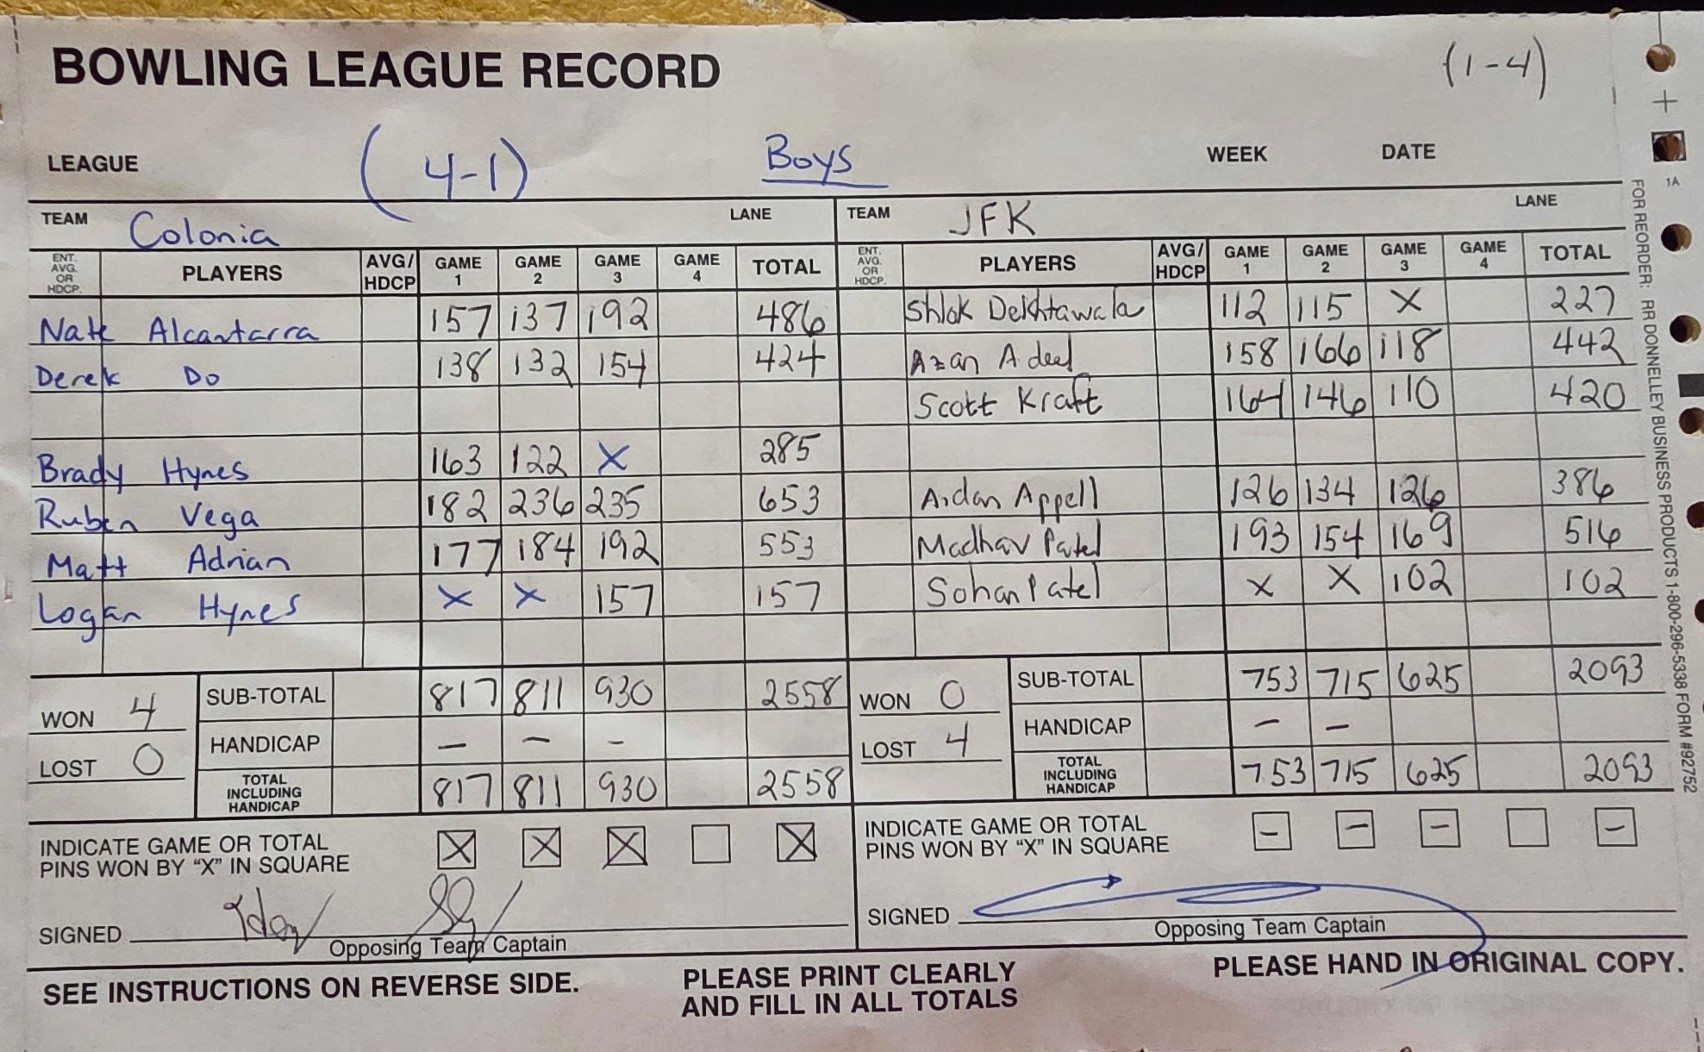 BOWLING LEAGUE RECORD (1-4)
LEAGUE (4-1) Boys WEEK DATE
TEAM Colonia LANE TEAM JFK LANE
ENT. AVG. OR HDCP. PLAYERS AVG/HDCP GAME 1 GAME 2 GAME 3 GAME 4 TOTAL ENT. AVG. OR HDCP. PLAYERS AVG/HDCP GAME 1 GAME 2 GAME 3 GAME 4 TOTAL
Nate Alcantarra 157 137 192 486 Shlok Dekhtawala 112 115 X 227
Derek Do 138 132 154 424 Azan Adeel 158 166 118 442
Scott Kraft 164 146 110 420
Brady Hynes 163 122 X 285
Ruben Vega 182 236 235 653 Aidan Appell 126 134 126 386
Matt Adrian 177 184 192 553 Madhav Patel 193 154 169 516
Logan Hynes X X 157 157 Sohan Patel X X 102 102
WON 4 SUB-TOTAL 817 811 930 2558 WON 0 SUB-TOTAL 753 715 625 2093
LOST 0 HANDICAP — — – LOST 4 HANDICAP – –
TOTAL INCLUDING HANDICAP 817 811 930 2558 TOTAL INCLUDING HANDICAP 753 715 625 2093
INDICATE GAME OR TOTAL INDICATE GAME OR TOTAL
PINS WON BY “X” IN SQUARE X X X X PINS WON BY “X” IN SQUARE – – – –
SIGNED SIGNED
Opposing Team Captain Opposing Team Captain
SEE INSTRUCTIONS ON REVERSE SIDE. PLEASE PRINT CLEARLY PLEASE HAND IN ORIGINAL COPY.
AND FILL IN ALL TOTALS
1A
FOR REORDER: RR DONNELLEY BUSINESS PRODUCTS 1-800-296-5338 FORM #92752